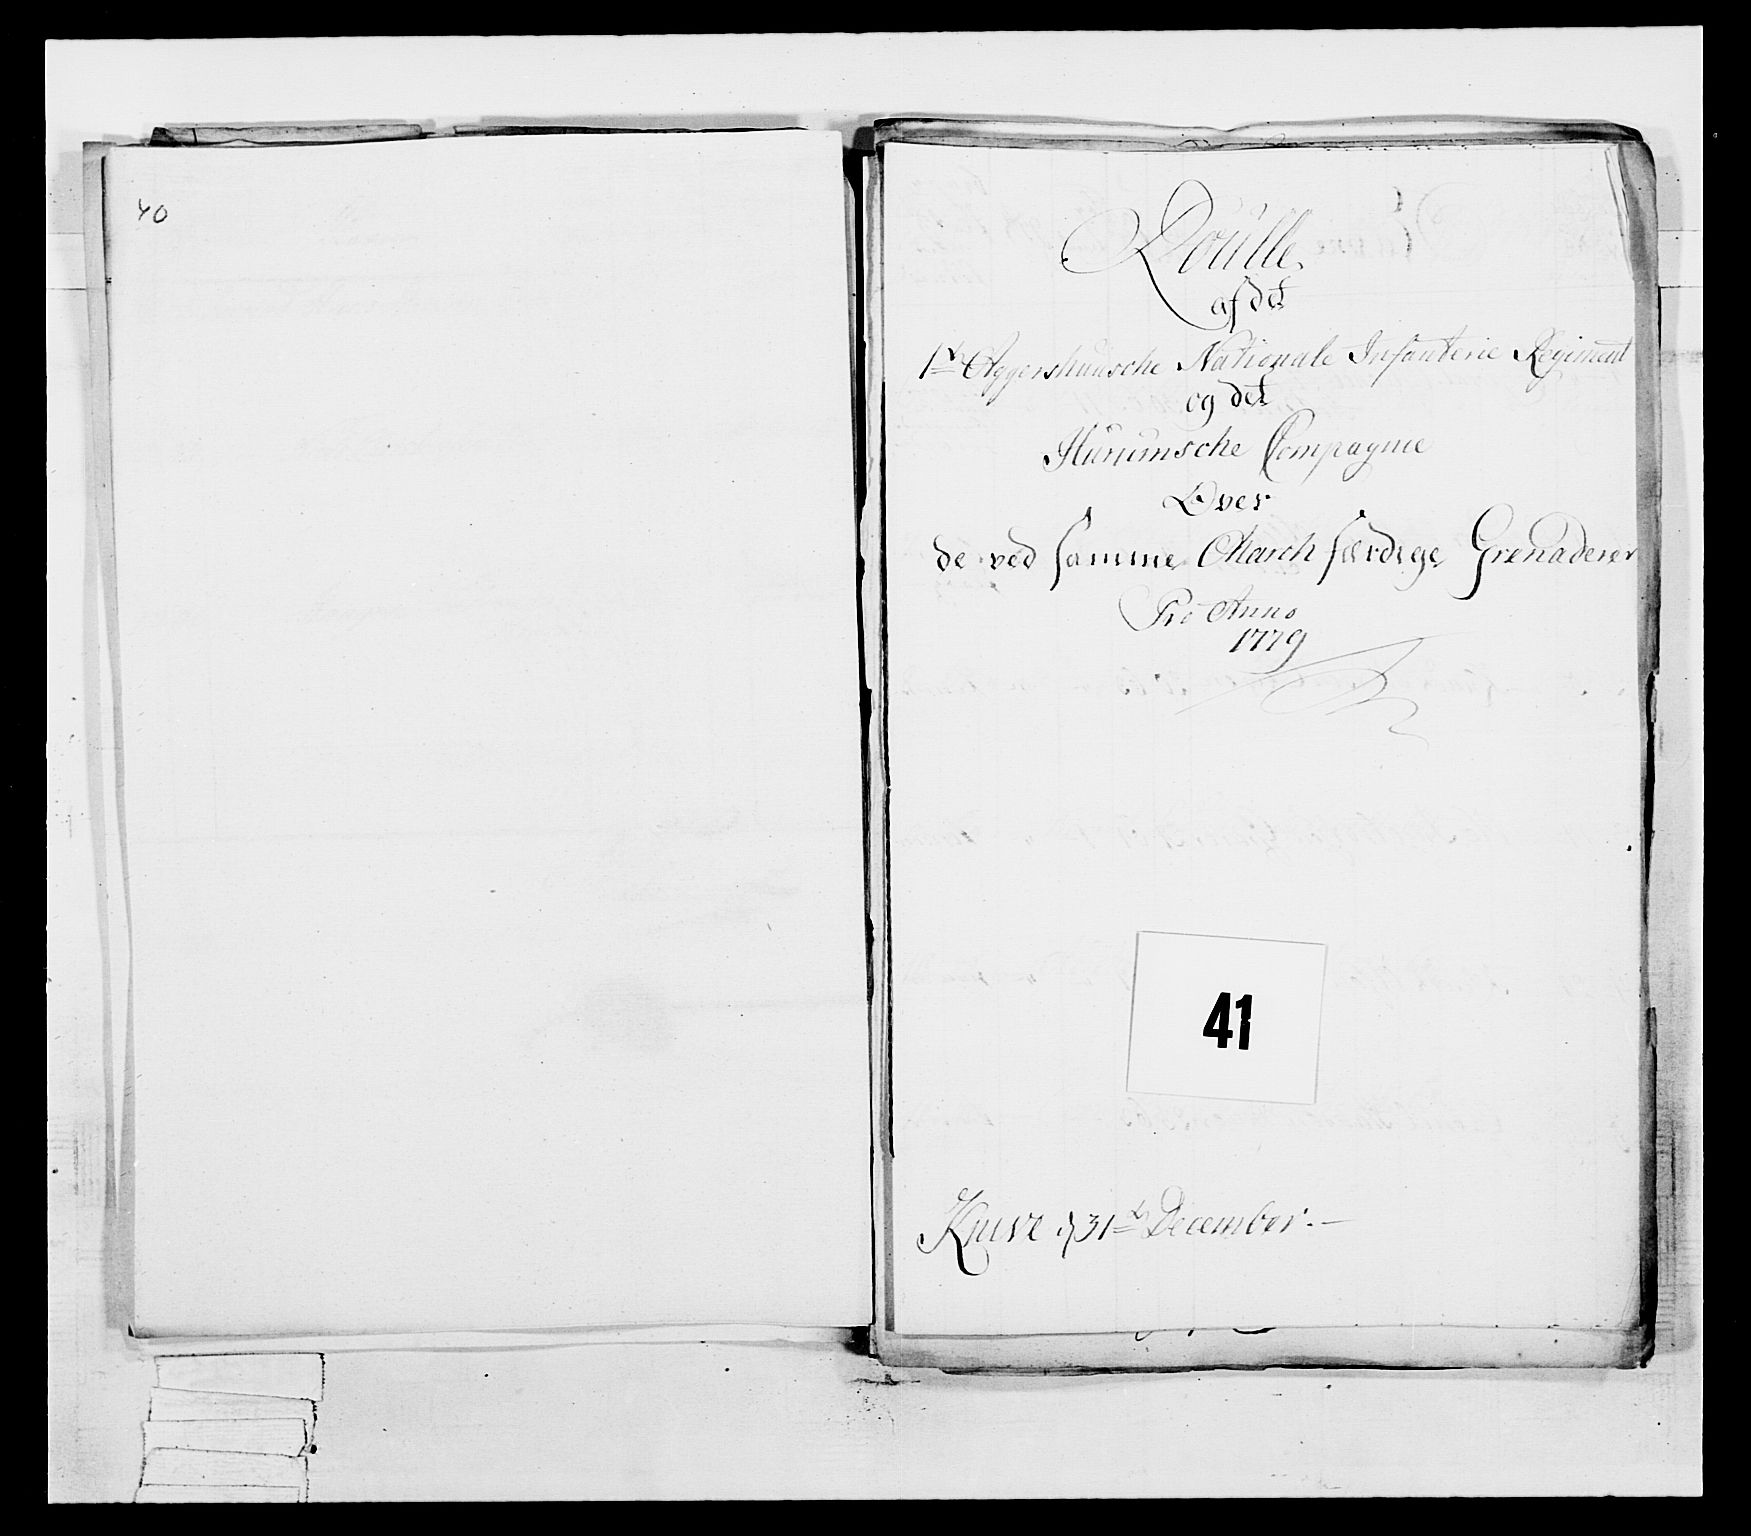 40
Roulle
af det
1te Aggershuusche Nationale Infanterie Regiment
og det
Hurumsche Compagnie
Over
de ved samme March færdige Grenaderer
Pro Anno
1779
41
d 31te December.